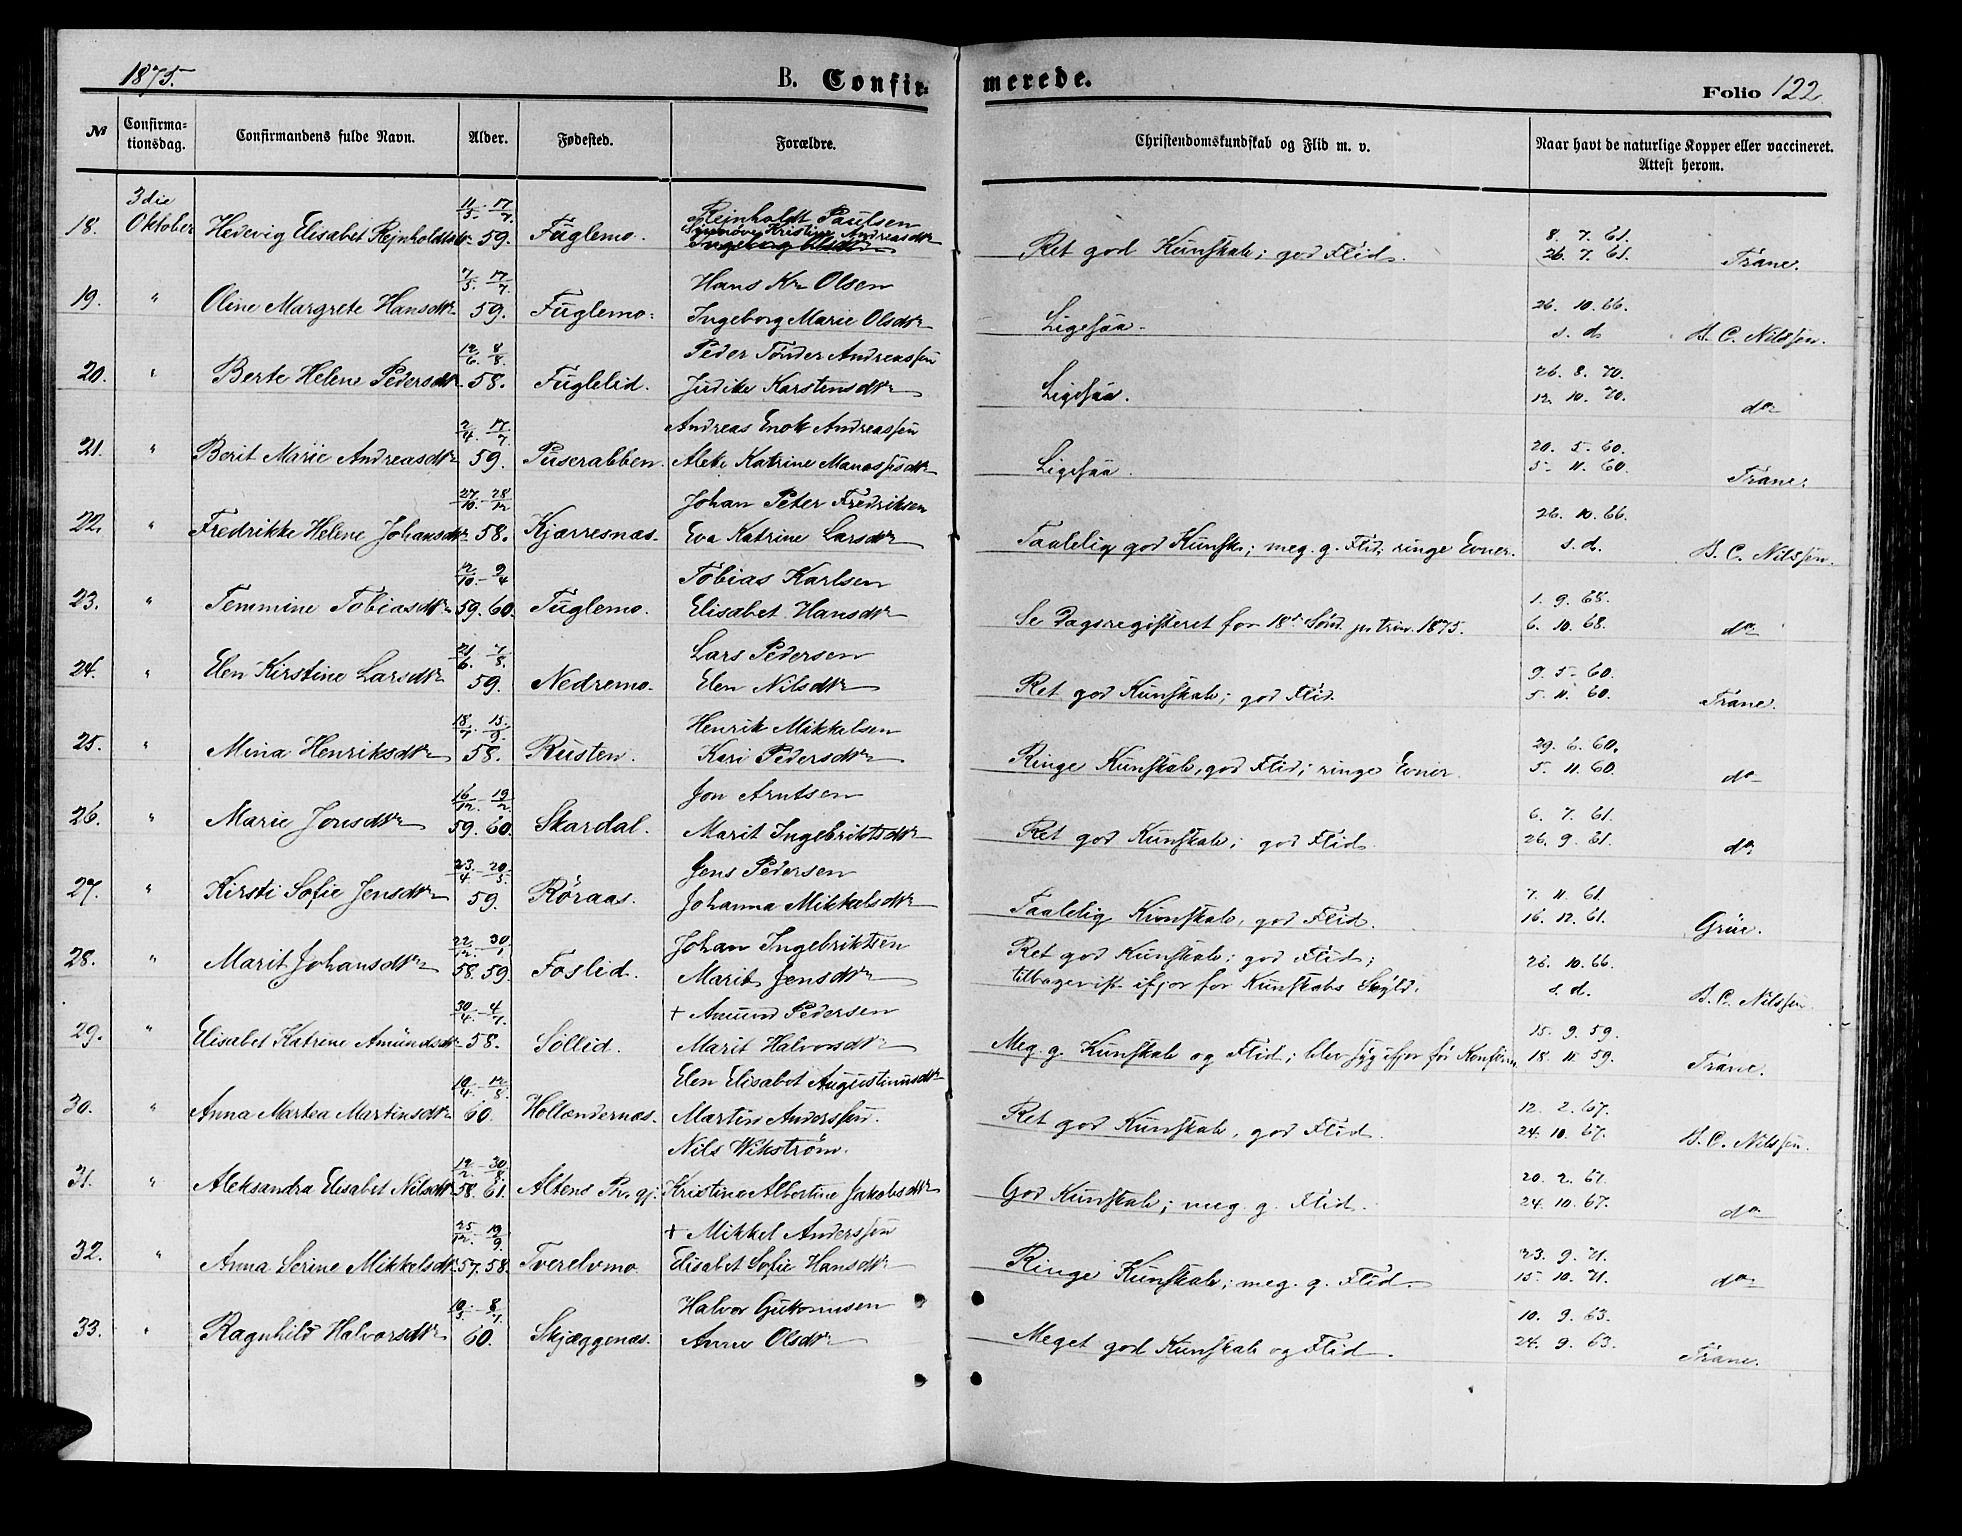 1875.
B. Confir-
merede.
Folio 122
№
Confirma-
tionsdag.
Confirmandens fulde Navn.
Alder.
Fødested.
Forældre.
Christendomskundskab og Flid m. v.
Naar havt de naturlige Kopper eller vaccineret.
Attest herom.
3die 11/5 - 17/7 Rejnholdt Paulsen
Synnøve Kristine Andreasdtr
18. Oktober Hedevig Elisabet Rejnholdtsdtr 59. Fuglemo. Ingeborg Olsdtr
8. 7. 61.
Ret god Kunskab; god Flid. 26. 7. 61. Trane.
7/5 - 17/7 Hans Kr Olsen
19. " Oline Margrete Hansdtr 59. Fuglemo. Ingeborg Marie Olsdtr
26. 10. 66.
Ligesaa. s. d. B. C. Nilssen.
12/6 8/8 Peder Tønder Andreassen
20. " Berte Helene Pedersdtr 58. Fuglelid. Judite Karstensdtr
26. 8. 70.
Ligesaa. 12. 10. 70. do
2/4 17/7 Andreas Enok Andreassen
21. " Berit Marie Andreasdtr 59. Puserabben. Alette Katrine Manassesdtr
20. 5. 60.
Ligesaa. 5. 11. 60. Trane.
27/10 - 28/12 Johan Peter Fredriksen
22. " Fredrikke Helene Johansdtr 58. Kjærresnæs. Eva Katrine Larsdtr
26. 10. 66.
Taalelig god Kunsk; meg. g. Flid; ringe Evner. s. d. B. C. Nilssen.
12/10 - 9/4 Tobias Karlsen
23. " Temmine Tobiasdtr 59. 60. Fuglemo. Elisabet Hansdtr
1. 9. 68.
Se Dagsregisteret for 18de Sønd. p. trin. 1875. 6. 10. 68. do
21/6 7/8 Lars Pedersen
24. " Elen Kirstine Larsdtr 59. Nedremo. Elen Nilsdtr
9. 5. 60.
Ret god Kunskab; god Flid. 5. 11. 60. Trane.
18/7 15/9 Henrik Mikkelsen
25. " Mina Henriksdtr 58. Rusten. Kari Pedersdtr
29. 6. 60.
Ringe Kunskab, god Flid; ringe Evner. 5. 11. 60. do
16/12 - 19/2 Jon Arntsen
26. " Marie Jonsdtr 59. 60. Skardal. Marit Ingebriktsdtr
6. 7. 61.
Ret god Kunskab; god Flid. 26. 9. 61. do
23/4 - 20/5 Jens Pedersen
27. " Kirsti Sofie Jensdtr 59. Røraas. Johanna Mikkelsdtr
7. 11. 61.
Taalelig Kunskab, god Flid. 16. 12. 61. Grüe.
22/12 - 30/1 Johan Ingebriktsen
28. " Marit Johansdtr 58. 59. Foslid. Marit Jensdtr
Ret god Kunskab; god Flid; 26. 10. 66.
tilbagevist ifjor for Kunskabs Skyld. s. d. B. C. Nilssen.
30/4 - 4/7 + Amund Pedersen
29. " Elisabet Katrine Amundsdtr 58. Sollid. Marit Halvorsdtr
15. 9. 59.
Meg. g. Kunskab og Flid; blev syg ifjor før Konfirm. 18. 11. 59. Trane.
19/4 - 12/8 Elen Elisabet Augustinusdtr
30. " Anna Martea Martinsdtr 60. Hollændernæs. Martin Anderssen.
12. 2. 67.
Ret god Kunskab, god Flid. 24. 10. 67. B. C. Nilssen.
12/2 - 30/8 Nils Wikstrøm.
31. " Aleksandra Elisabet Nilsdtr 58. 61. Altens Pr. gj. Kristine Albertine Jakobsdtr
20. 2. 67.
God Kunskab; meg. g. Flid. 24. 10. 67. do
25/12 - 19/9 + Mikkel Anderssen
32. " Anna Serine Mikkelsdtr 57. 58. Tverelvmo. Elisabet Sofie Hansdtr
23. 9. 71.
Ringe Kunskab; meg. g. Flid. 15. 10. 71. do
10/3 - 8/7 Halvor Guttormsen
33. " Ragnhild Halvorsdtr 60. Skjæggenæs. Anne Olsdtr
10. 9. 63.
Meget god Kunskab og Flid. 24. 9. 63. Trane.